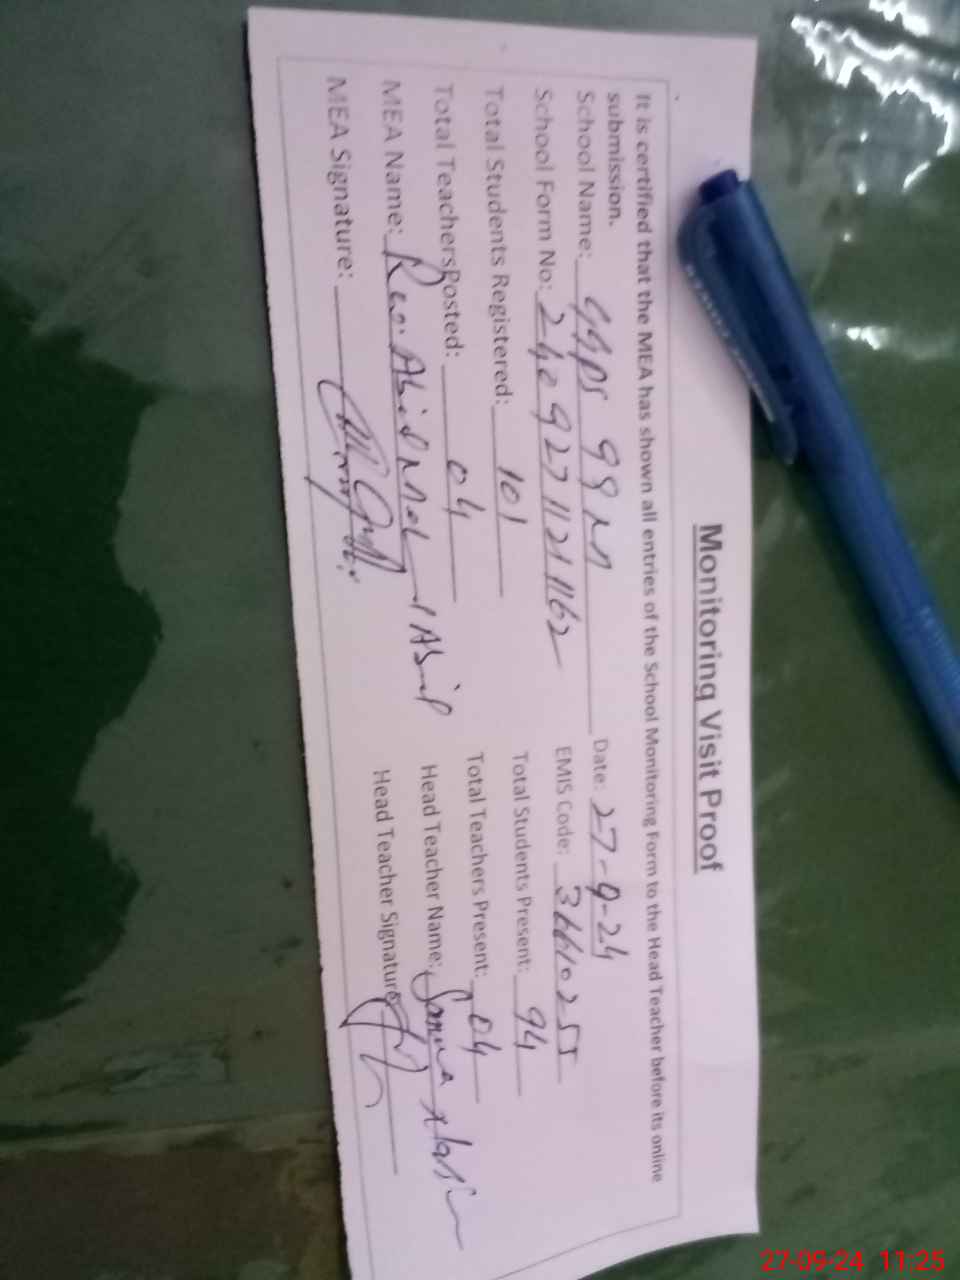 Monitoring Visit Proof
It is certified that the MEA has shown all entries of the School Monitoring Form to the Head Teacher before its online
submission.
School Name: GGPS 99 M Date: 27-9-24
School Form No: 2409271121162 EMIS Code: 36610255
Total Students Registered: 101 Total Students Present: 94
Total TeachersPosted: 04 Total Teachers Present: 04
MEA Name: Rao Abid Head Teacher Name:
MEA Signature: Head Teacher Signature
27-09-24 11:25